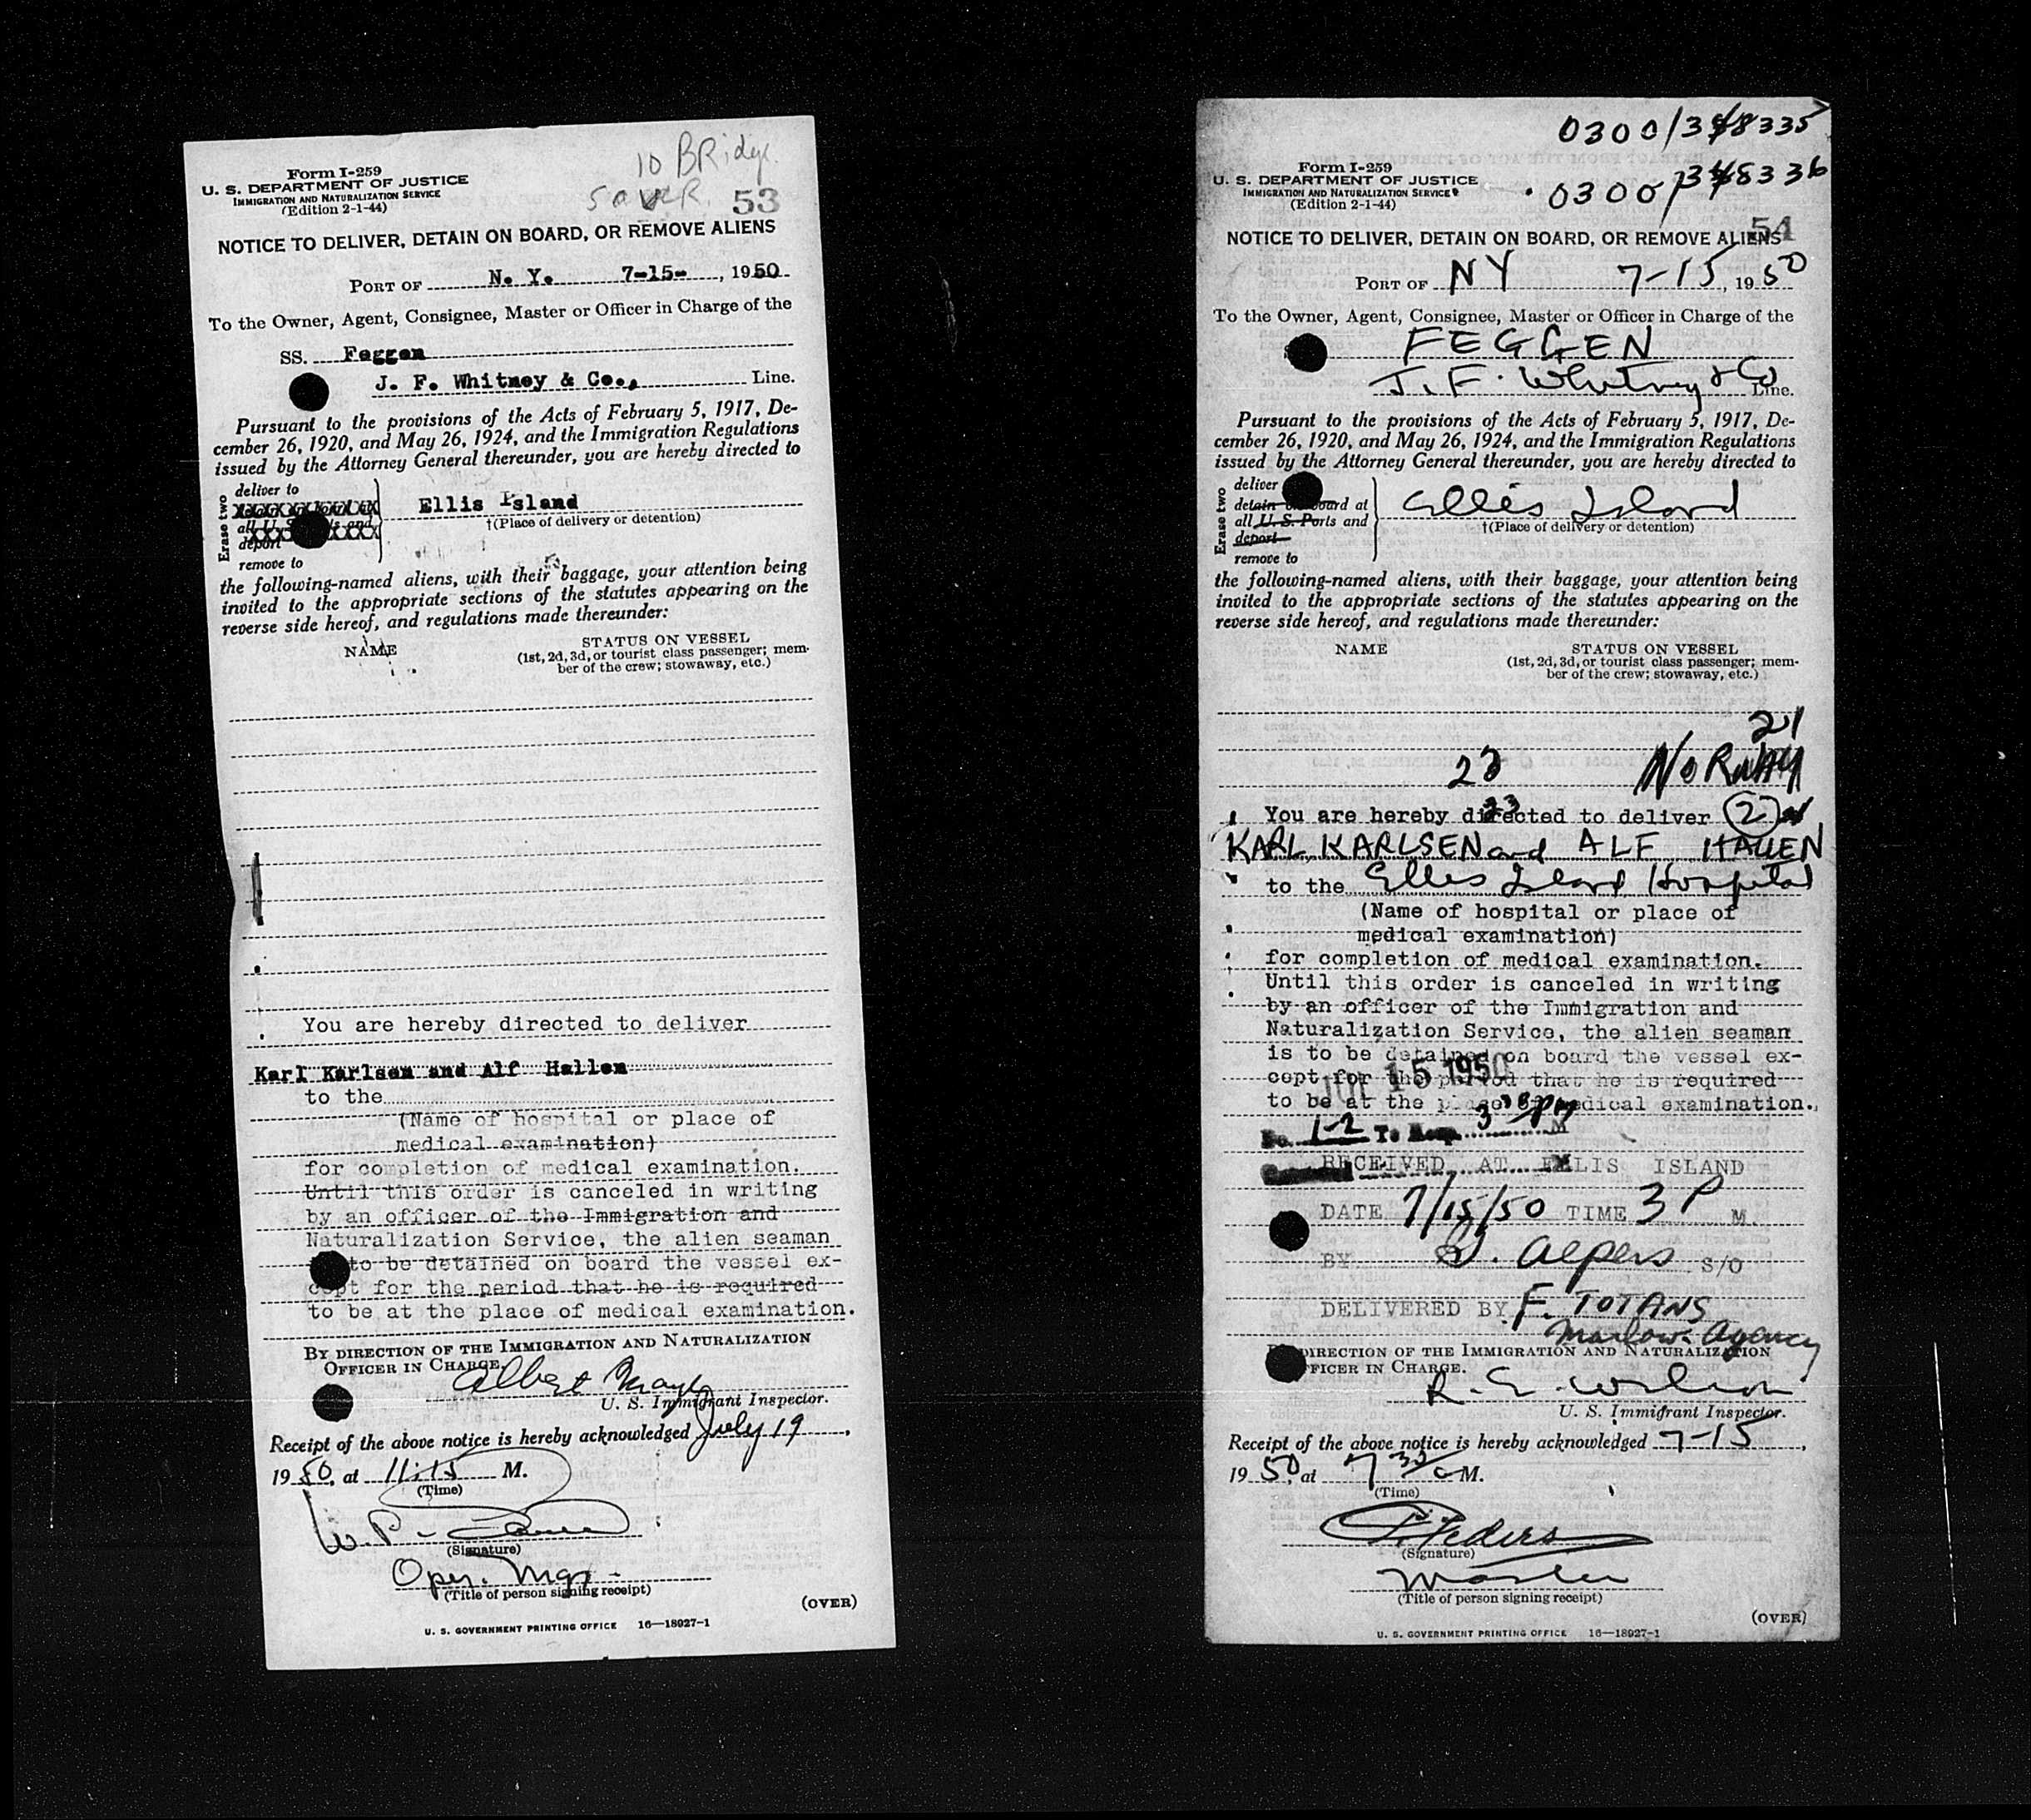 10 BRidge
Form I-259
U. S. DEPARTMENT OF JUSTICE
IMMIGRATION AND NATURALIZATION SERVICE
(Edition 2-1-44)
53
NOTICE TO DELIVER, DETAIN ON BOARD, OR REMOVE ALIENS
PORT OF N. Y. 7-15- , 1950
To the Owner, Agent, Consignee, Master or Officer in Charge of the
SS. Feggen
J. F. Whitney & Co., Line.
Pursuant to the provisions of the Acts of February 5, 1917, De-
cember 26, 1920, and May 26, 1924, and the Immigration Regulations
issued by the Attorney General thereunder, you are hereby directed to
Erase two
deliver to
all U. S. and
deport
remove to
Ellis Island
†(Place of delivery or detention)
the following-named aliens, with their baggage, your attention being
invited to the appropriate sections of the statutes appearing on the
reverse side hereof, and regulations made thereunder:
NAME
STATUS ON VESSEL
(1st, 2d, 3d, or tourist class passenger; mem-
ber of the crew; stowaway, etc.)
You are hereby directed to deliver
Karl Karlsen and Alf Hallen
to the
(Name of hospital or place of
medical examination)
for completion of medical examination.
Until this order is canceled in writing
by an officer of the Immigration and
Naturalization Service, the alien seaman
to be detained on board the vessel ex-
cept for the period that he is required
to be at the place of medical examination.
BY DIRECTION OF THE IMMIGRATION AND NATURALIZATION
OFFICER IN CHARGE.
Albert
U. S. Immigrant Inspector.
Receipt of the above notice is hereby acknowledged July 19,
1950, at 11:15 M.
(Time)
W. P.
(Signature)
Oper. Mgr.
(Title of person signing receipt)
(OVER)
U. S. GOVERNMENT PRINTING OFFICE 16—18927-1
0300/348335
0300/348336
Form I-259
U. S. DEPARTMENT OF JUSTICE
IMMIGRATION AND NATURALIZATION SERVICE
(Edition 2-1-44)
54
NOTICE TO DELIVER, DETAIN ON BOARD, OR REMOVE ALIENS
PORT OF NY 7-15, 1950
To the Owner, Agent, Consignee, Master or Officer in Charge of the
FEGGEN
J. F. Whitney & Co Line.
Pursuant to the provisions of the Acts of February 5, 1917, De-
cember 26, 1920, and May 26, 1924, and the Immigration Regulations
issued by the Attorney General thereunder, you are hereby directed to
Erase two
deliver
detain on board at
all U. S. Ports and
deport
remove to
Ellis Island
†(Place of delivery or detention)
the following-named aliens, with their baggage, your attention being
invited to the appropriate sections of the statutes appearing on the
reverse side hereof, and regulations made thereunder:
NAME
STATUS ON VESSEL
(1st, 2d, 3d, or tourist class passenger; mem-
ber of the crew; stowaway, etc.)
21
23 NORWAY
23
You are hereby directed to deliver (2)
KARL KARLSEN and ALF HALLEN
to the Ellis Island Hospital
(Name of hospital or place of
medical examination)
for completion of medical examination.
Until this order is canceled in writing
by an officer of the Immigration and
Naturalization Service, the alien seaman
is to be detained on board the vessel ex-
cept for the period that he is required
to be at the place of medical examination.
JUL 15 1950
No. 1-2 To Hosp. 3 30 PM
RECEIVED AT ELLIS ISLAND
DATE 7/15/50 TIME 3 P M.
BY Alpers S/O
DELIVERED BY F. TOTANS
Marlow Agency
BY DIRECTION OF THE IMMIGRATION AND NATURALIZATION
OFFICER IN CHARGE.
R. E. Wilson
U. S. Immigrant Inspector.
Receipt of the above notice is hereby acknowledged 7-15,
1950, at 7 30 a M.
(Time)
(Signature)
Master
(Title of person signing receipt)
(OVER)
U. S. GOVERNMENT PRINTING OFFICE 16—18927-1